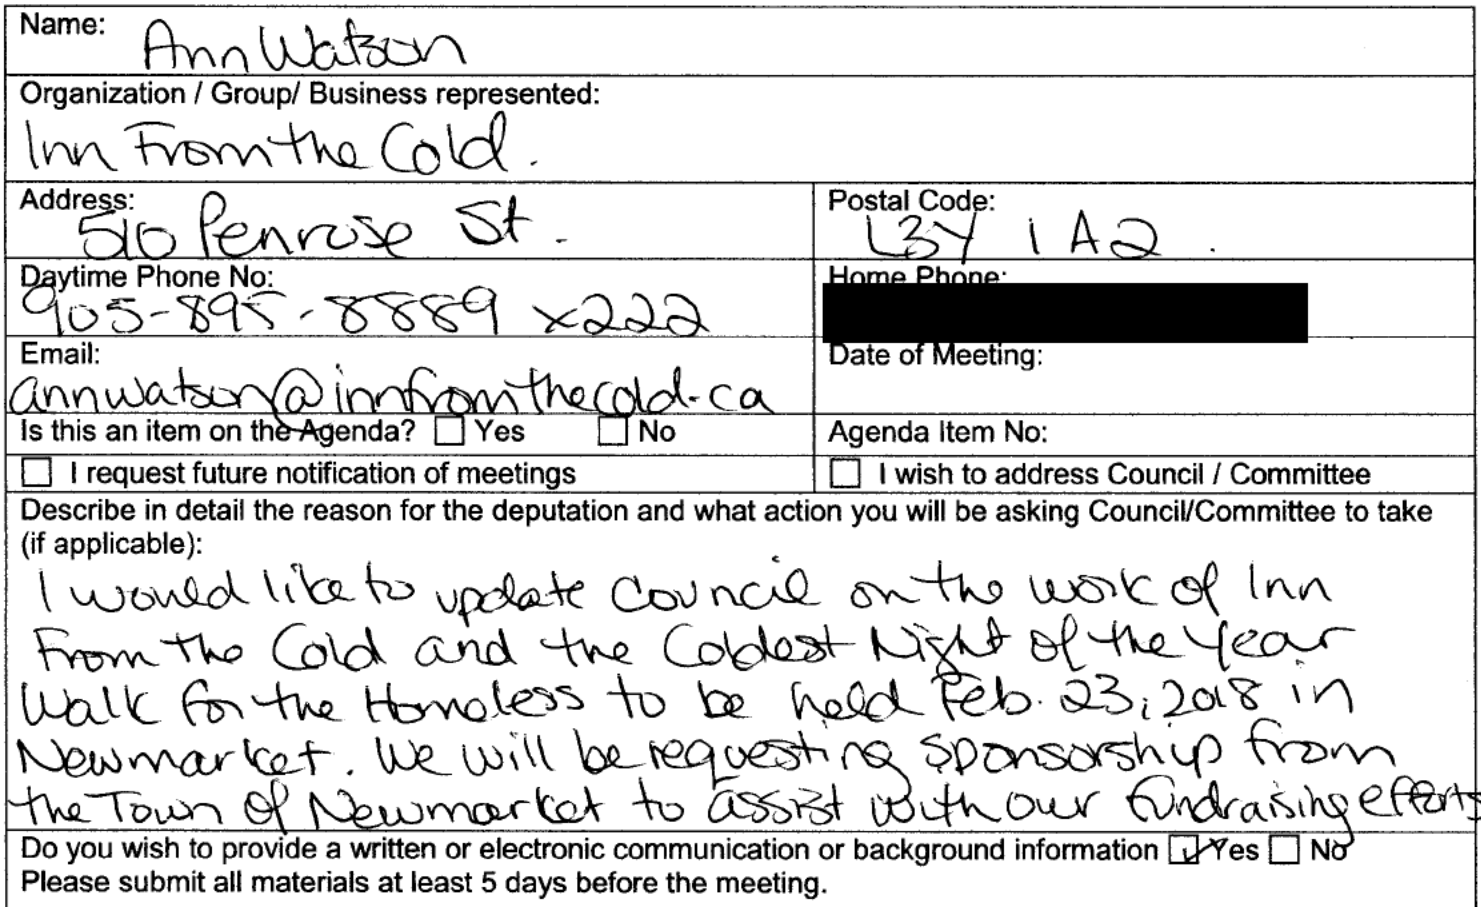 Name: Ann Watson
Organization / Group/ Business represented:
Inn From the Cold.
Address: Postal Code:
510 Penrose St. L3Y 1A2.
Daytime Phone No: Home Phone:
905-895-8889 x222
Email: Date of Meeting:
annwatson@innfromthecold.ca
Is this an item on the Agenda? ☐ Yes ☐ No Agenda Item No:
☐ I request future notification of meetings ☐ I wish to address Council / Committee
Describe in detail the reason for the deputation and what action you will be asking Council/Committee to take
(if applicable):
I would like to update Council on the work of Inn
From the Cold and the Coldest Night of the Year
Walk for the Homeless to be held Feb. 23, 2018 in
Newmarket. We will be requesting sponsorship from
the Town of Newmarket to assist with our fundraising efforts
Do you wish to provide a written or electronic communication or background information ☑ Yes ☐ No
Please submit all materials at least 5 days before the meeting.